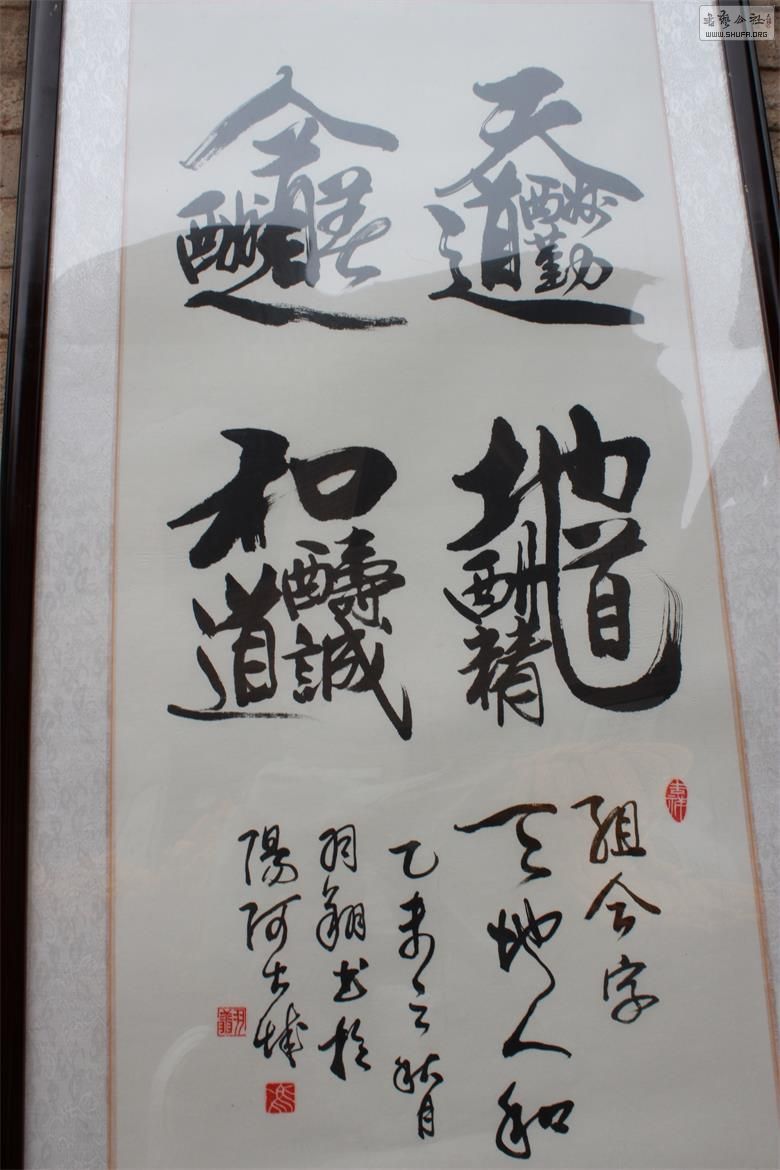 天道酬勤
地道酬精
人道酬善
和道醻誠
吉祥
組合字
天地人和
乙未之秋月
羽翔书於
陽阿古城
書藝公社
WWW.SHUFA.ORG